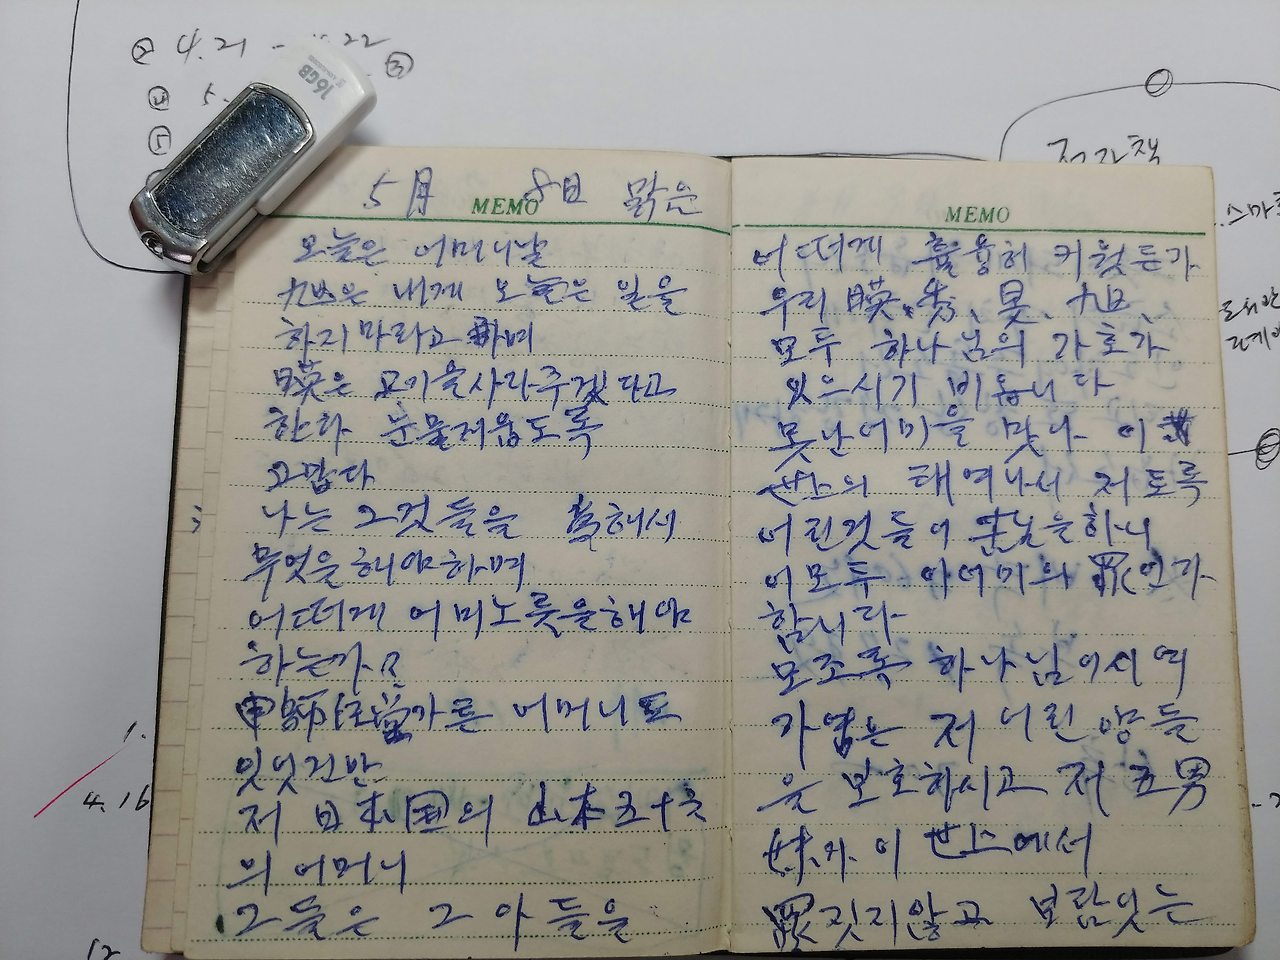 ② 4.21 - 4.22
③
④ 5.
⑤
16GB
5月 8日 맑은
MEMO
오늘은 어머니날
九旦은 내게 오늘은 일을
하지마라고 하며
暎은 고기을사라주겠다고
한다 눈물저웁도록
고맙다
나는 그것들을 爲해서
무엇을해야하며
어떠게 어미노릇을해야
하는가?
申師任堂가튼 어머니도
잇엇건만
저 日本国의 山本五十六
의 어머니
그들은 그 아들을
MEMO
어떠게 훌융히 키웠든가
우리 暎、秀、昊、九旦、
모두 하나님의 가호가
있으시기 비옵니다
못난어미을 맞나 이
世上의 태여나서 저토록
어린것들이 고생을하니
이모두 이어미의 罪인가
함니다
모조록 하나님이시여
가엽은 저 어린 양들
은 보호하시고 저 五男
妹가 이 世上에서
罪짓지않고 보람잇는
정가책
스마
1.
4.16
12